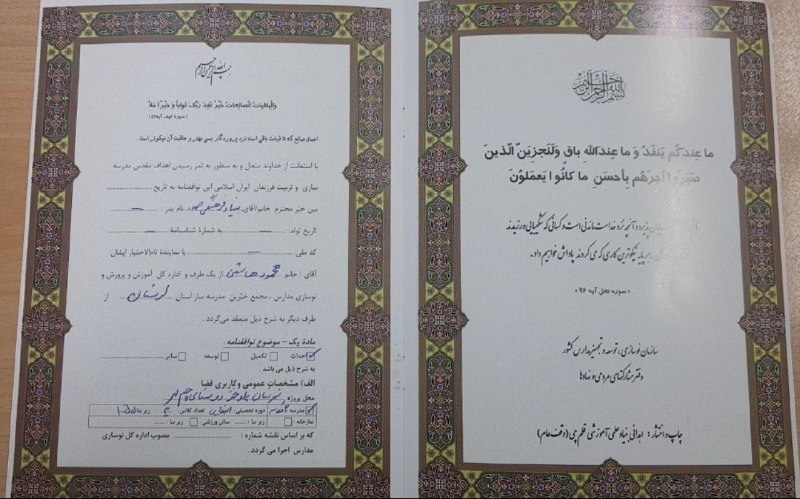 بسم الله الرحمن الرحیم
ما عِندَکُم یَنفَدُ وَ ما عِندَاللهِ باقٍ وَلَنَجزِیَنَّ الَّذینَ
صَبَروا اَجرَهُم بِاَحسَنِ ما کانُوا یَعمَلوُنَ
پذیرد و آنچه نزد خداست ماندنی است و کسانی که شکیبایی ورزیدند
نیکوترین کاری که می کردند پاداش خواهیم داد.
«سوره نحل آیه ۹۶»
سازمان نوسازی، توسعه و تجهیز مدارس کشور
دفتر مشارکتهای مردمی و نهادها
چاپ و انتشار: اهدائی بنیاد علمی آموزشی قلم چی (وقف عام)
بسم الله الرحمن الرحیم
والباقیات الصالحات خیرٌ عِندَ ربّک ثواباً وَ خیرٌ اَمَلاً
(سوره کهف آیه۴۶)
اعمال صالح که تا قیامت باقی است نزد پروردگار بسی بهتر و عاقبت آن نیکوتر است
با استعانت از خداوند متعال و به منظور به ثمر رسیدن اهداف مقدس مدرسه
سازی و تربیت فرزندان ایران اسلامی این توافقنامه به تاریخ
بین خیّر محترم خانم/آقای بنیاد فرهنگی نام پدر -
تاریخ تولد: - به شماره شناسنامه -
کد ملی - یا نماینده تام‌الاختیار ایشان
آقای / خانم محمود هاشمی از یک طرف و اداره کل آموزش و پرورش و
نوسازی مدارس، مجمع خیّرین مدرسه ساز استان لرستان از
طرف دیگر به شرح ذیل منعقد می‌گردد.
مادة یک – موضوع توافقنامه:
احداث تکمیل توسعه سایر
به شرح ذیل می باشد
الف) مشخصات عمومی و کاربری فضا
محل پروژه
مدرسه دوره تحصیلی ابتدایی تعداد کلاس زیربنا
نمازخانه: زیربنا: سالن ورزشی زیربنا:
که بر اساس نقشه شماره: مصوب اداره کل نوسازی
مدارس اجرا می گردد.